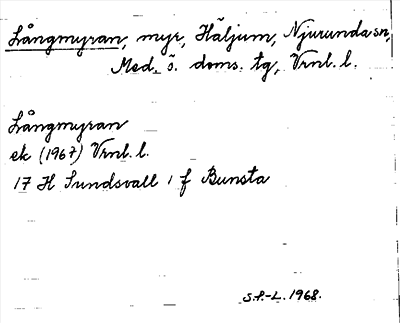 Långmyran, myr, Häljum, Njurunda sn,
Med. s. doms. tg, Vrnl. l.
Långmyran
ek (1967) Vrnl. l.
17 H Sundsvall 1 f Bunsta
S.P.-L. 1968.